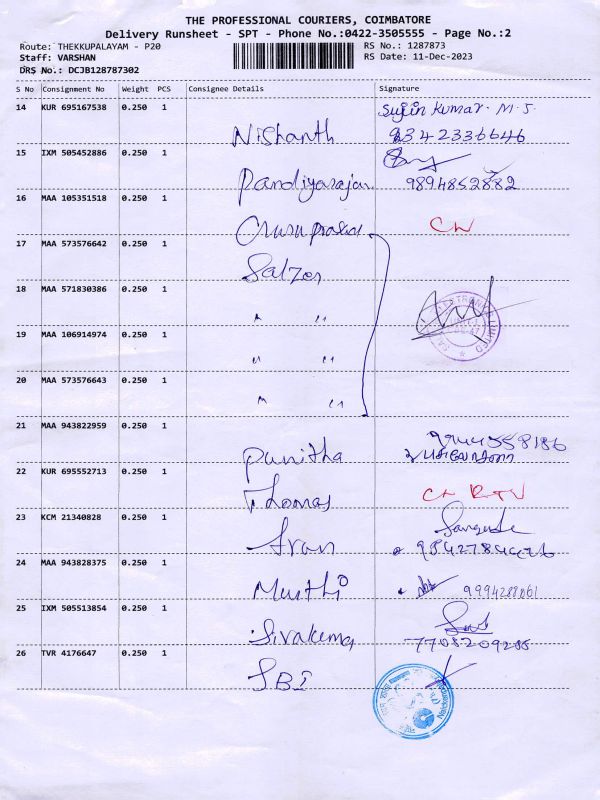 THE PROFESSIONAL COURIERS, COIMBATORE
Delivery Runsheet - SPT - Phone No.:0422-3505555 - Page No.:2
Route: THEKKUPALAYAM - P20
RS No.: 1287873
Staff: VARSHAN
RS Date: 11-Dec-2023
DRS No.: DCJB128787302
S No Consignment No Weight PCS Consignee Details Signature
14 KUR 695167538 0.250 1 Nishanth Sujin Kumar. M. S.
9342336646
15 IXM 505452886 0.250 1 Pandiyarajan
9894852882
16 MAA 105351518 0.250 1 Guruprasad
17 MAA 573576642 0.250 1 Salzer
18 MAA 571830386 0.250 1 " "
19 MAA 106914974 0.250 1 " "
20 MAA 573576643 0.250 1 " "
21 MAA 943822959 0.250 1 Punitha 9944558186
22 KUR 695552713 0.250 1 Thomas
23 KCM 21340828 0.250 1
24 MAA 943828375 0.250 1 Murthi
25 IXM 505513854 0.250 1 Sivakumar
7708209285
26 TVR 4176647 0.250 1 SBI